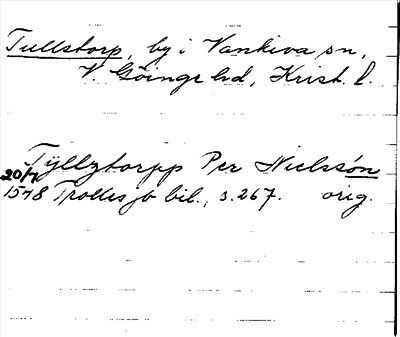 Tullstorp, by i Vankiva sn,
V. Göinge hd, Krist. l.
Tÿllztorpp Per Nielssón
20/7
1578 Trolles jb bil., s. 267. orig.